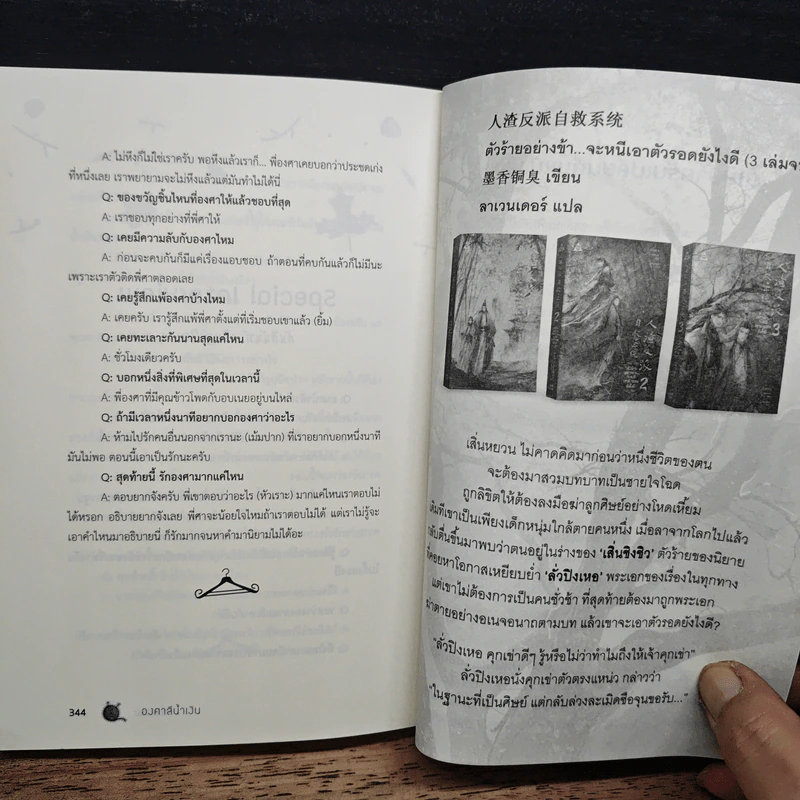 A: ไม่หึงก็ไม่ใช่เราครับ พอหึงแล้วเราก็... พี่องศาเคยบอกว่าประชดเก่ง
ที่หนึ่งเลย เราพยายามจะไม่หึงแล้วแต่มันทำไม่ได้นี่
Q: ของขวัญชิ้นไหนที่องศาให้แล้วชอบที่สุด
A: เราชอบทุกอย่างที่พี่ศาให้
Q: เคยมีความลับกับองศาไหม
A: ก่อนจะคบกันก็มีแค่เรื่องแอบชอบ ถ้าตอนที่คบกันแล้วก็ไม่มีนะ
เพราะเราตัวติดพี่ศาตลอดเลย
Q: เคยรู้สึกแพ้องศาบ้างไหม
A: เคยครับ เรารู้สึกแพ้พี่ศาตั้งแต่ที่เริ่มชอบเขาแล้ว (ยิ้ม)
Q: เคยทะเลาะกันนานสุดแค่ไหน
A: ชั่วโมงเดียวครับ
Q: บอกหนึ่งสิ่งที่พิเศษที่สุดในเวลานี้
A: พี่องศาที่มีคุณข้าวโพดกับอบเนยอยู่บนไหล่
Q: ถ้ามีเวลาหนึ่งนาทีอยากบอกองศาว่าอะไร
A: ห้ามไปรักคนอื่นนอกจากเรานะ (เม้มปาก) ที่เราอยากบอกหนึ่งนาที
มันไม่พอ ตอนนี้เอาเป็นรักนะครับ
Q: สุดท้ายนี้ รักองศามากแค่ไหน
A: ตอบยากจังครับ พี่เขาตอบว่าอะไร (หัวเราะ) มากแค่ไหนเราตอบไม่
ได้หรอก อธิบายยากจังเลย พี่ศาจะน้อยใจไหมถ้าเราตอบไม่ได้ แต่เราไม่รู้จะ
เอาคำไหนมาอธิบายนี่ ก็รักมากจนหาคำมานิยามไม่ได้อะ
344 องศาสีน้ำเงิน
人渣反派自救系统
ตัวร้ายอย่างข้า...จะหนีเอาตัวรอดยังไงดี (3 เล่มจ
墨香铜臭 เขียน
ลาเวนเดอร์ แปล
2
3
เสิ่นหยวน ไม่คาดคิดมาก่อนว่าหนึ่งชีวิตของตน
จะต้องมาสวมบทบาทเป็นชายใจโฉด
ถูกลิขิตให้ต้องลงมือฆ่าลูกศิษย์อย่างโหดเหี้ยม
เดิมทีเขาเป็นเพียงเด็กหนุ่มใกล้ตายคนหนึ่ง เมื่อลาจากโลกไปแล้ว
กลับตื่นขึ้นมาพบว่าตนอยู่ในร่างของ ‘เสิ่นชิงชิว’ ตัวร้ายของนิยาย
ที่คอยหาโอกาสเหยียบย่ำ ‘ลั่วปิงเหอ’ พระเอกของเรื่องในทุกทาง
แต่เขาไม่ต้องการเป็นคนชั่วช้า ที่สุดท้ายต้องมาถูกพระเอก
ฆ่าตายอย่างอเนจอนาถตามบท แล้วเขาจะเอาตัวรอดยังไงดี?
“ลั่วปิงเหอ คุกเข่าดีๆ รู้หรือไม่ว่าทำไมถึงให้เจ้าคุกเข่า”
ลั่วปิงเหอนั่งคุกเข่าตัวตรงแหน่ว กล่าวว่า
“ในฐานะที่เป็นศิษย์ แต่กลับล่วงละเมิดซือจุนขอรับ...”